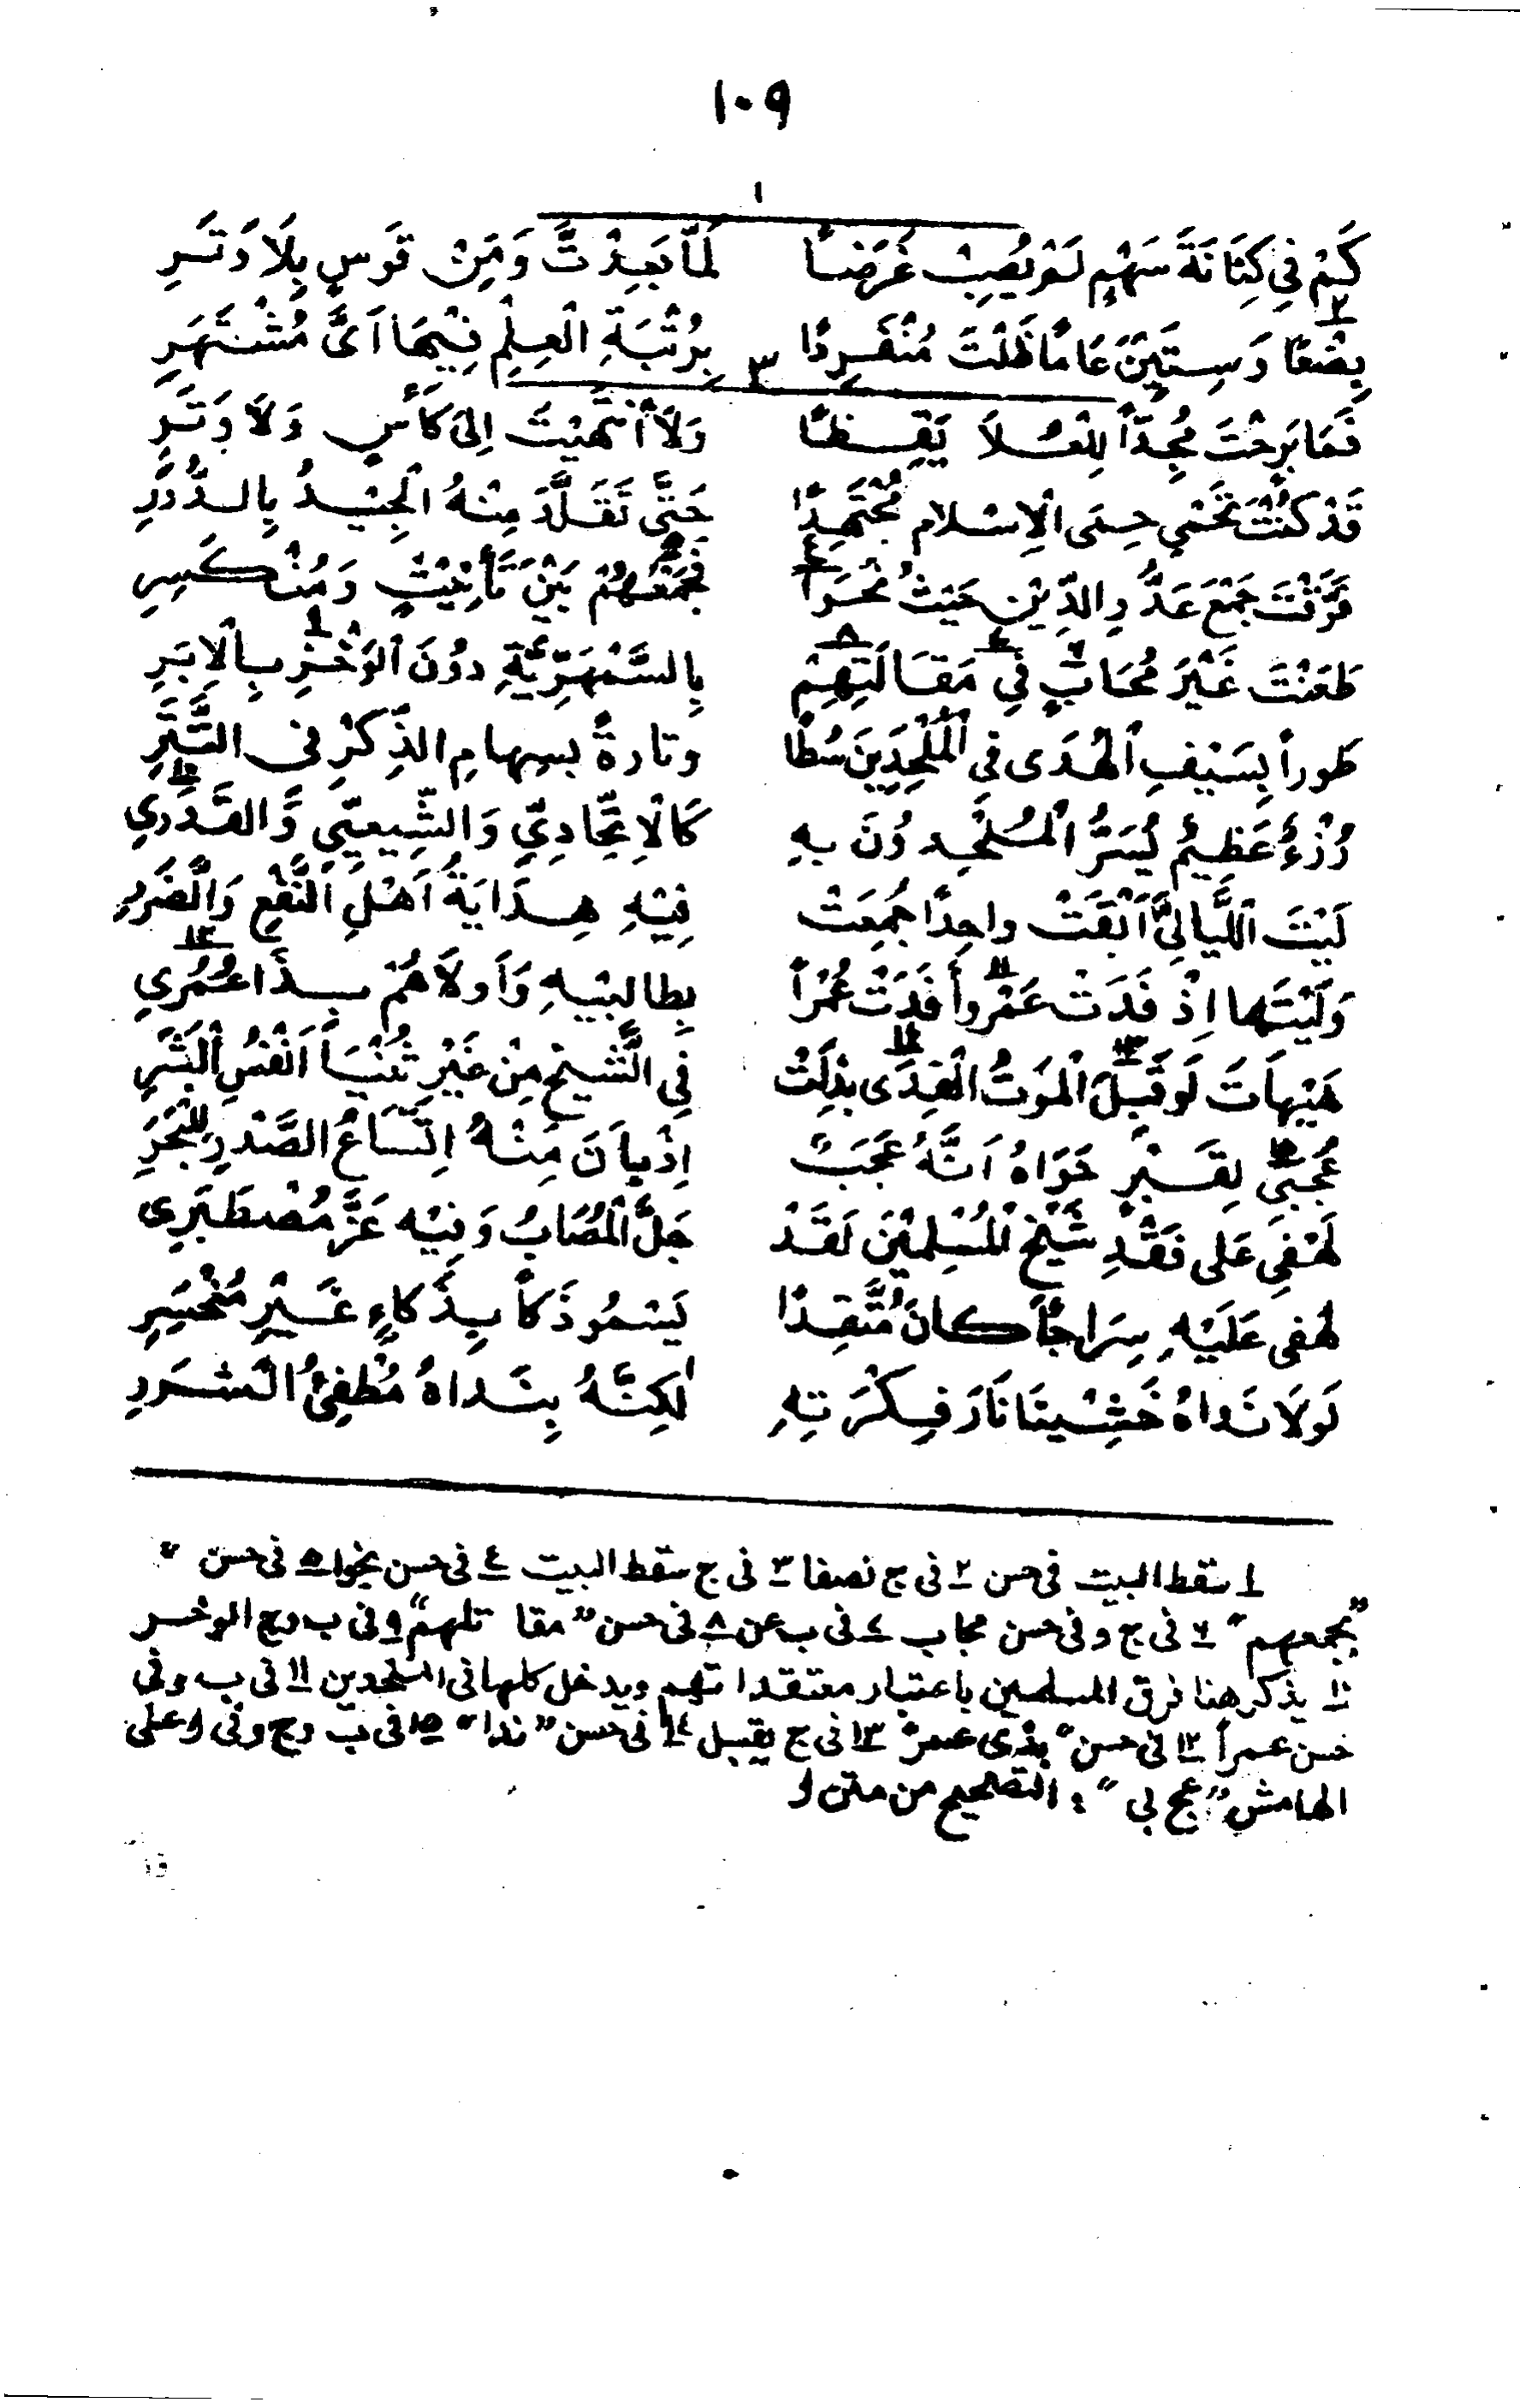 ١٠٩
١
كَمْ فِي كِنَانَةَ سَهْمٍ لَمْ يُصِبْ غَرَضاً لَمَّا بَعِدْتَّ وَمَنْ قَوسٍ بِلَا وَتَرِ
بِضْعًا وَسِتِّيْنَ عَامًا ظَلْتَ مُنْفَرِدًا ٣ بِرُتْبَةِ الْعِلْمِ فِيْهَا اَىَّ مُشْتَهَرِ
فَمَا بَرِحْتَ مُجِدّاً لِلْعُلاَ يَقِظًا وَلاَ انْتَهَيْتَ اِلىٰ كَأْسٍ وَلاَ وَتَرِ
قَدْ كُنْتَ تَحْمِي حِمَى الْاِسْلَامِ مُجْتَهِدًا حَتّٰى تَقَلَّدَ مِنْهُ الْجِيْدُ بِالدُّرَرِ
فَرَّقْتَ جَمْعَ عَدُوِّ الدِّيْنِ حَيْثُ نَحَوَا ٤ فَجَمْعُهُمْ ٥ بَيْنَ تَأْنِيْثٍ وَمُنْكَسِرِ
طَعَنْتَ غَيْرَ مُحَابٍ ٦ فِي ٧ مَقَالَتِهِمْ ٨ بِالسَّمْهَرِيَّةِ دُوْنَ الْوَخْزِ ٩ بِالْاِبَرِ
طوراً بِسَيْفِ الْهُدَى فِي الْمُلْحِدِيْنَ سُطًا وتارةً بسِهامِ الذِّكْرِ فى التَّتَرِ
رُزْءٌ عَظِيمٌ يُسَرُّ الْمُلْحِدُوْنَ بِهِ كَالْاِتِّحَادِيِّ وَالشِّيعِيِّ وَالْقَدَرِي ١٠
لَيْتَ اللَّيَالِيَ اَبْقَتْ واحِدًا جُمِعَتْ فِيْهِ هِدَايَةُ اَهْلِ النَّفْعِ وَالضَّرَرِ
وَلَيْتَها اِذْ فَدَتْ عَمْرواً ١١ فَدَتْ عُمَرًا بِطالِبِيْهِ وَاَولاَهُمْ بِذَا عُمُرِي ١٢
هَيْهاتَ لَو قَبِلَ ١٣ الْمَوتُ الْفِدَى ١٤ بذَلَتْ فِي الشَّيْخِ مِنْ غَيْرِ ثُنْيَا اَنْفُسُ الْبَشَرِ
عَجَبِي ١٥ لِقَبْرٍ حَوَاهُ اَنَّهُ عَجَبٌ اِذْ بانَ مِنْهُ اِتِّسَاعُ الصَّدْرِ لِلْبَحَرِ
لَهْفِي عَلى فَقْدِ شَيْخِ الْمُسْلِمِيْنَ لَقَدْ جَلَّ الْمُصَابُ وَفِيْه عَزَّ مُصْطَبَرِى
لهفى عَلَيْهِ سِرَاجًا كانَ مُتَّقِدًا يَسْمُو ذَكاً بِذَكاءٍ غَيْرِ مُنْحَسِرِ
لَولَا نَداهُ خَشِيْنَا نَارَ فِكْرَتِهِ لٰكِنَّهُ بِنَداهُ مُطْفِئُ الشَّرَرِ
١ سقط البيت فى حسن ٢ فى ج نصفا ٣ فى ج سقط البيت ٤ فى حسن نخوا ٥ فى حسن
”بجمعهم“ ٦ فى ج وفى حسن مجاب ٧ فى ب عن ٨ فى حسن ”مقا تلهم“ ٩ فى ب وج الوخر
١٠ يذكر هنا فرق المسلمين باعتبار معتقداتهم ويدخل كلها فى الملحدين ١١ فى ب وفى
حسن عمراً ١٢ فى حسن ”بذى عمر“ ١٣ فى ج يقبل ١٤ فى حسن ”ندا“ ١٥ فى ب وج وفى ا وعلى
الهامش ”عج بى“ ، التصحيح من متن ا